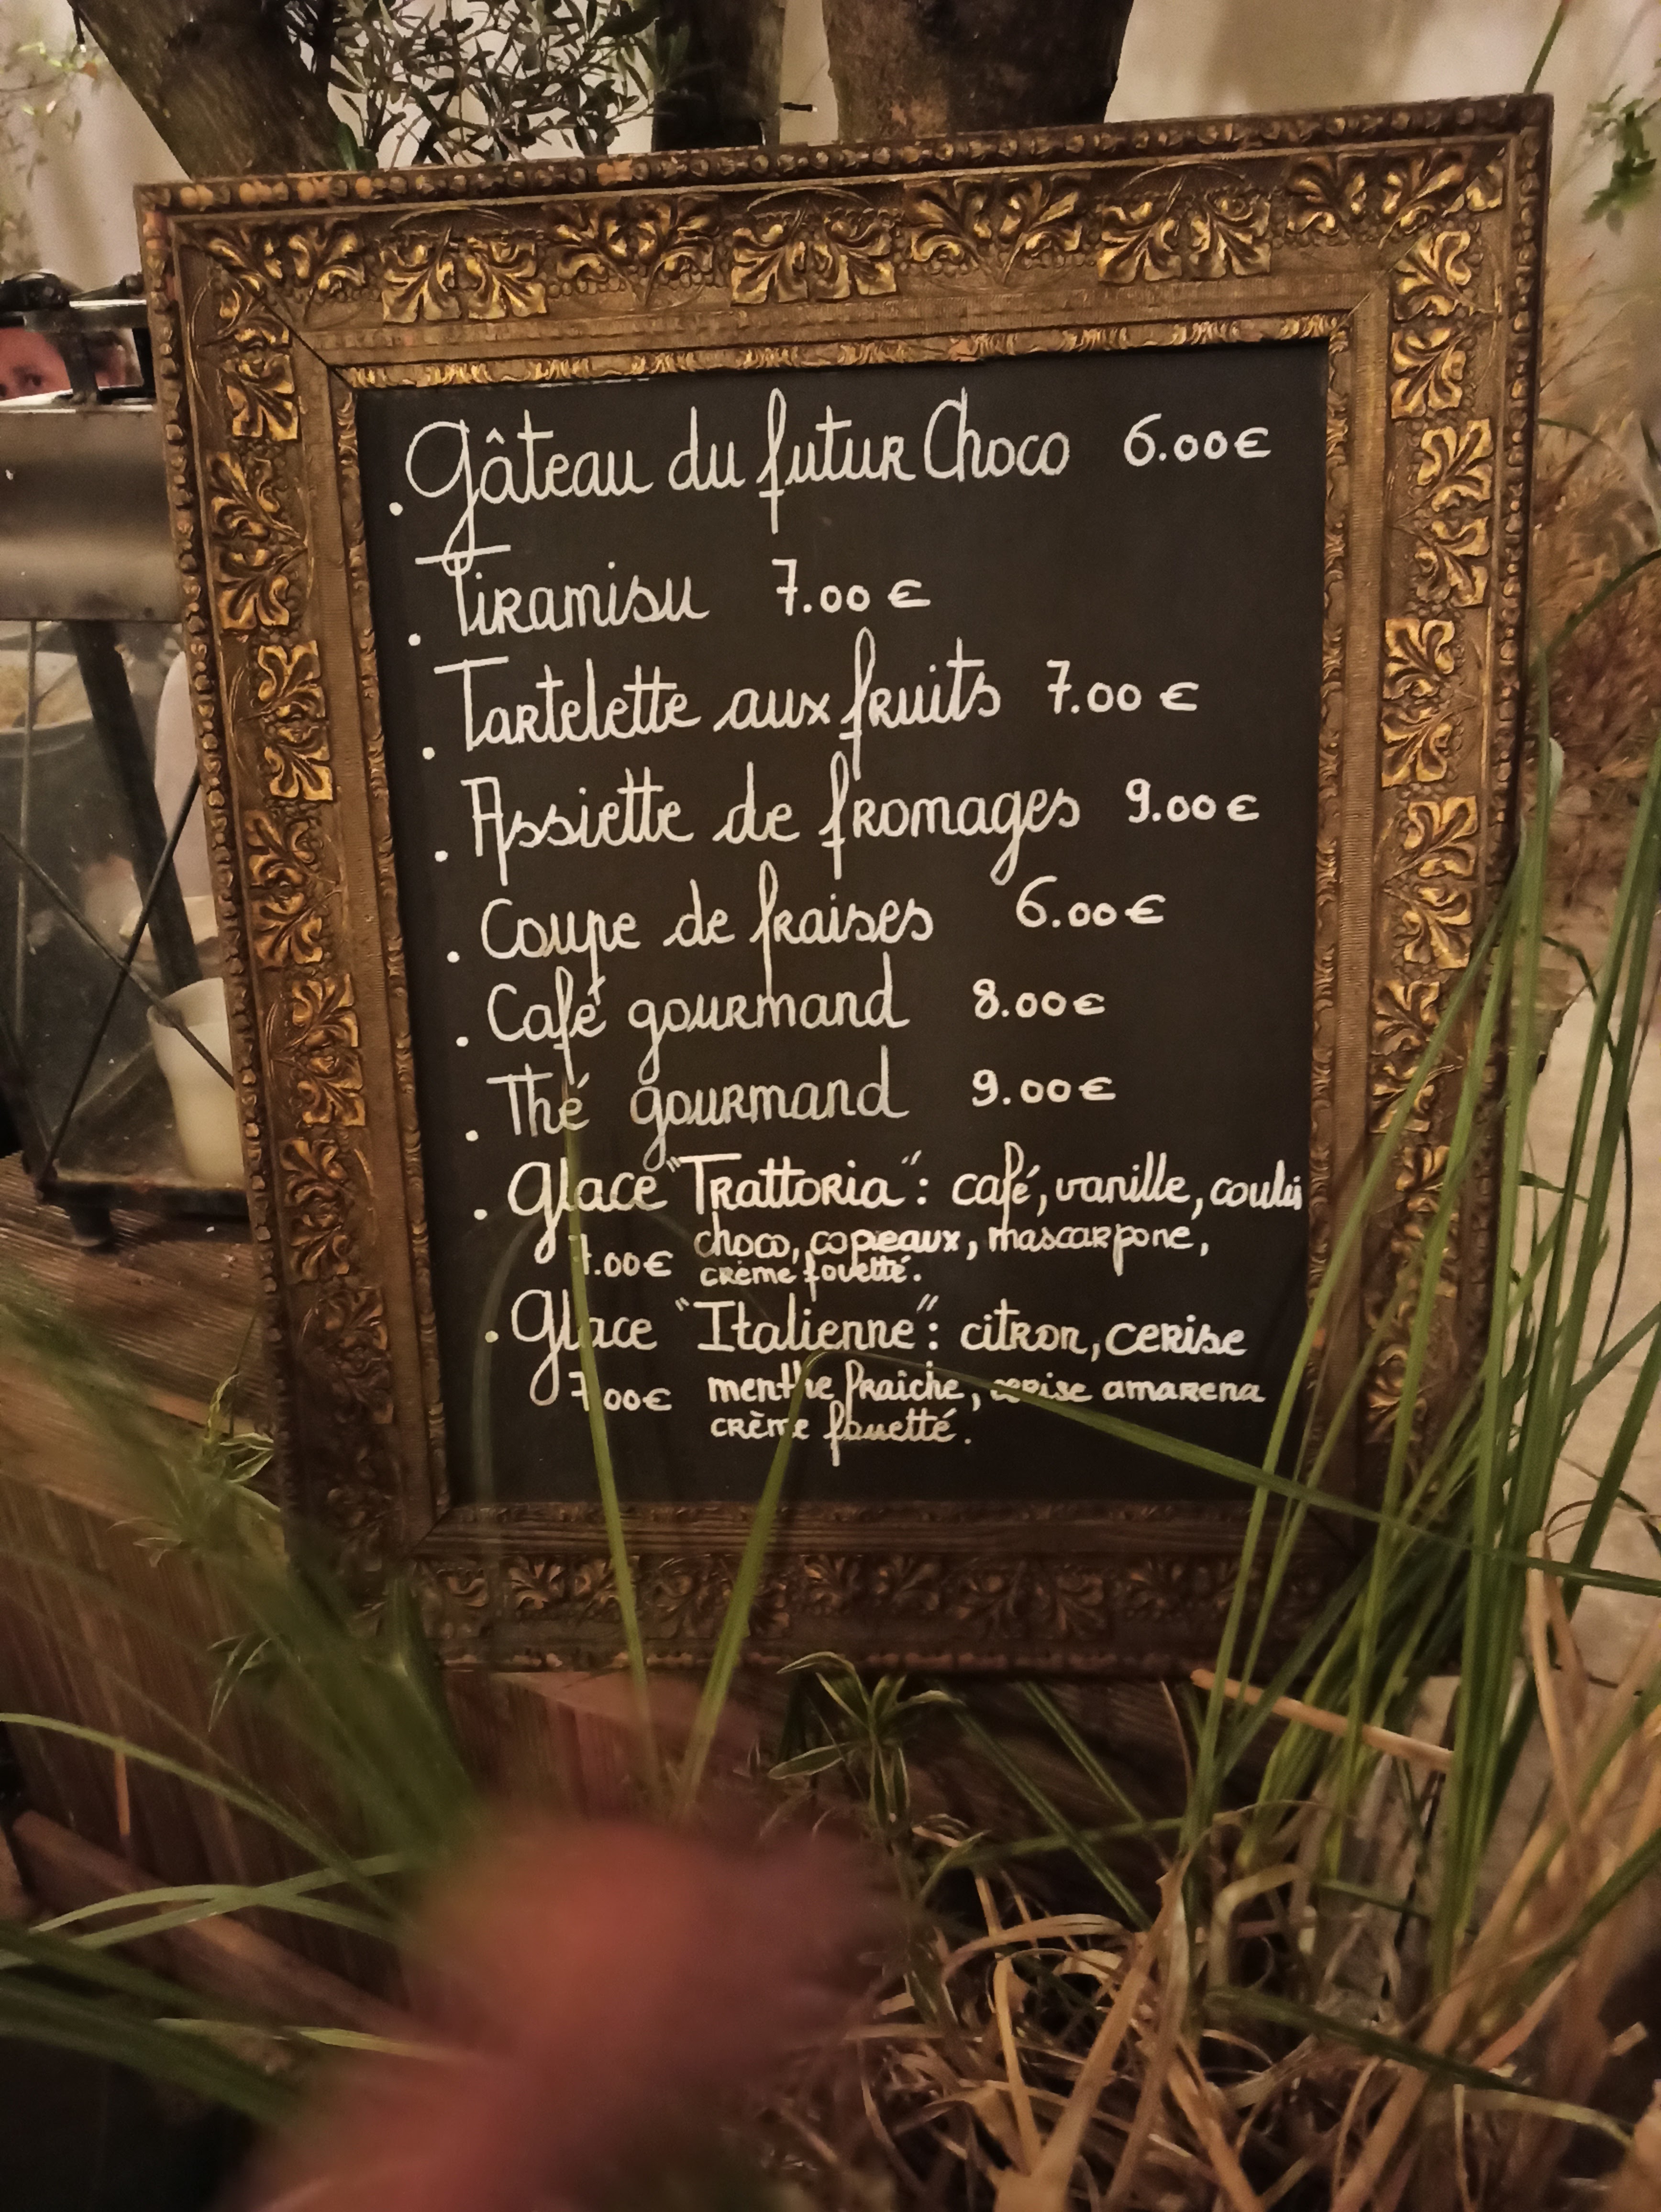 . Gâteau du futur Choco 6.00€
. Tiramisu 7.00€
. Tartelette aux fruits 7.00€
. Assiette de fromages 9.00€
. Coupe de fraises 6.00€
. Café gourmand 8.00€
. Thé gourmand 9.00€
. Glace "Trattoria": café, vanille, coulis
choco, copeaux, mascarpone,
7.00€ crème fouetté.
. Glace "Italienne": citron, cerise
7.00€ menthe fraîche, cerise amarena
crème fouetté.